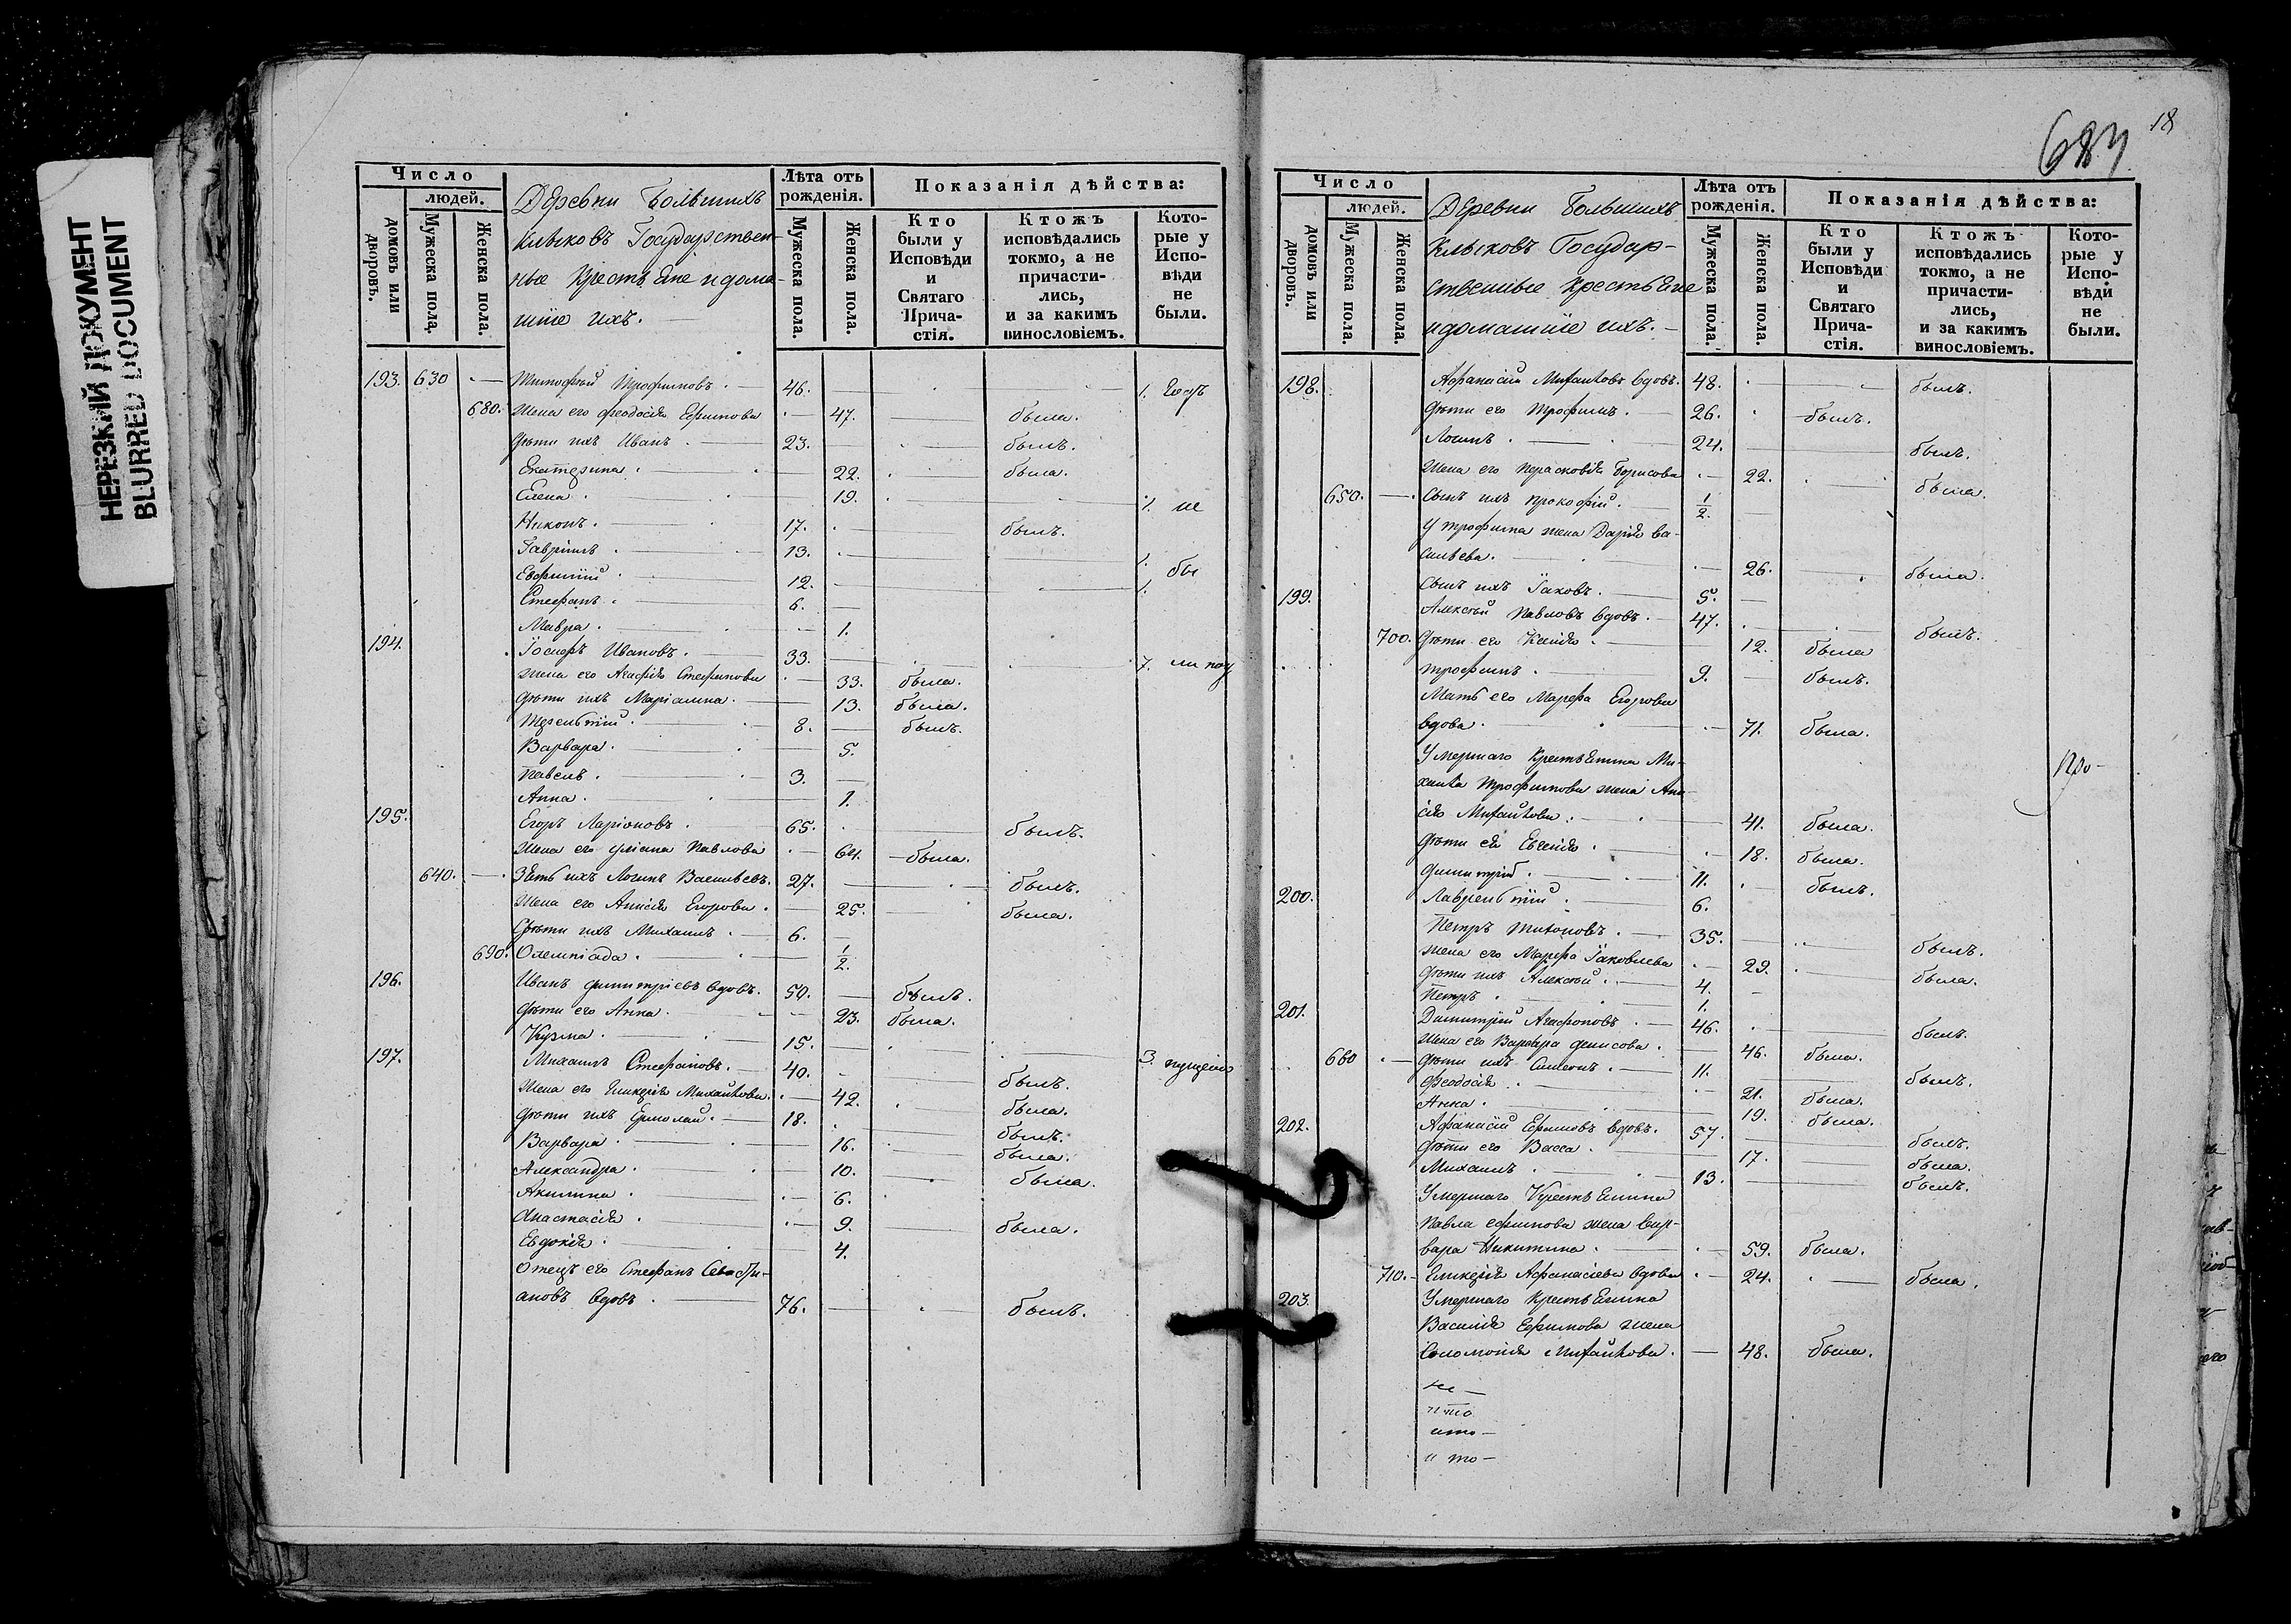 НЕРЕЗКИЙ ДОКУМЕНТ
BLURRED DOCUMENT
Число
людей.
домовъ или дворовъ.
Мужеска пола.
Женска пола.
Деревни Большихъ
Клыковъ Государствен-
ные Крестьяне и дома-
шніе ихъ. —
Лѣта отъ рожденія.
Мужеска пола.
Женска пола.
Показанія дѣйства:
Кто были у Исповѣди и Святаго Прича-стія.
Ктожъ исповѣдались токмо, а не причасти-лись, и за какимъ винословіемъ.
Кото-рые у Испо-вѣди не были.
193. 630 Тимофѣй Трофимовъ. 46. 1.
680. Жена его Феодосія Ефимова 47. была.
Дѣти ихъ Иванъ. 23. былъ.
Екатерина. 22. была.
Елена. 19. 1. не
Никонъ. 17. былъ.
Гавріилъ. 13. 1.
Евфимій. 12. 1. бы
Стефанъ. 6.
Мавра. 1.
194. Іосифъ Ивановъ. 33. 7.
Жена его Агафія Стефанова 33. была.
Дѣти ихъ Маріамна. 13. была.
Терентій. 8. былъ.
Варвара. 5.
Павелъ. 3.
Анна. 1.
195. Егоръ Ларіоновъ. 65. былъ.
Жена его Уліана Павлова 64. была.
640. Зять ихъ Логинъ Васильевъ. 27. былъ.
Жена его Анисія Егорова. 25. была.
Дѣти ихъ Михаилъ. 6.
690. Олемпіада. 1/2.
196. Иванъ Димитріевъ вдовъ. 50. былъ.
Дѣти его Анна. 23. была.
Кузма. 15. 3. пущенію
197. Михаилъ Стефановъ. 40. былъ.
Жена его Гликерія Михайлова. 42. была.
Дѣти ихъ Ермолай. 18. былъ.
Варвара. 16. была.
Александра. 10. была.
Акилина. 6.
Анастасія. 9. была.
Евдокія. 4.
Отецъ его Стефанъ Севастi-
ановъ вдовъ. 76. былъ.
18
687
Число
людей.
домовъ или дворовъ.
Мужеска пола.
Женска пола.
Деревни Большихъ
Клыковъ Государ-
ственные Крестьяне
и домашніе ихъ. —
Лѣта отъ рожденія.
Мужеска пола.
Женска пола.
Показанія дѣйства:
Кто были у Исповѣди и Святаго Прича-стія.
Ктожъ исповѣдались токмо, а не причасти-лись, и за какимъ винословіемъ.
Кото-рые у Испо-вѣди не были.
198. Афанасій Михайловъ вдовъ. 48. былъ.
Дѣти его Трофимъ. 26. былъ.
Логинъ. 24. былъ.
Жена его Парасковія Борисова 22. была.
650. Сынъ ихъ Прокофій. 1/2.
У Трофима жена Дарія Ва-
сильева. 26. была.
Сынъ ихъ Іаковъ. 5.
199. Алексѣй Павловъ вдовъ. 47. былъ.
700. Дѣти его Ксенія. 12. была
Трофимъ. 9. былъ.
Мать его Марфа Егорова
вдова. 71. была.
Умершаго Крестьянина Ми-
хаила Трофимова жена Ани-
сія Михайлова. 41. была.
Дѣти ея Евгенія. 18. была.
Димитрій. 11. былъ.
Лаврентій. 6.
200. Петръ Тихоновъ. 35. былъ.
Жена его Марфа Іаковлева 29. была.
Дѣти ихъ Алексѣй. 4.
Петръ. 1.
201. Димитрій Агафоновъ. 46. былъ.
Жена его Варвара Денисова. 46. была.
660 Дѣти ихъ Симеонъ. 11. былъ.
Феодосія. 21. была.
Анна. 19. была.
202. Афанасій Ефимовъ вдовъ. 57. былъ.
Дѣти его Васса. 17. была.
Михаилъ. 13. былъ.
Умершаго Крестьянина
Павла Ефимова жена Вар-
вара Никитина. 59. была.
710. Гликерія Афанасіева вдова 24. была.
203. Умершаго Крестьянина
Василія Ефимова жена
Соломонія Михайлова. 48. была.
Про-